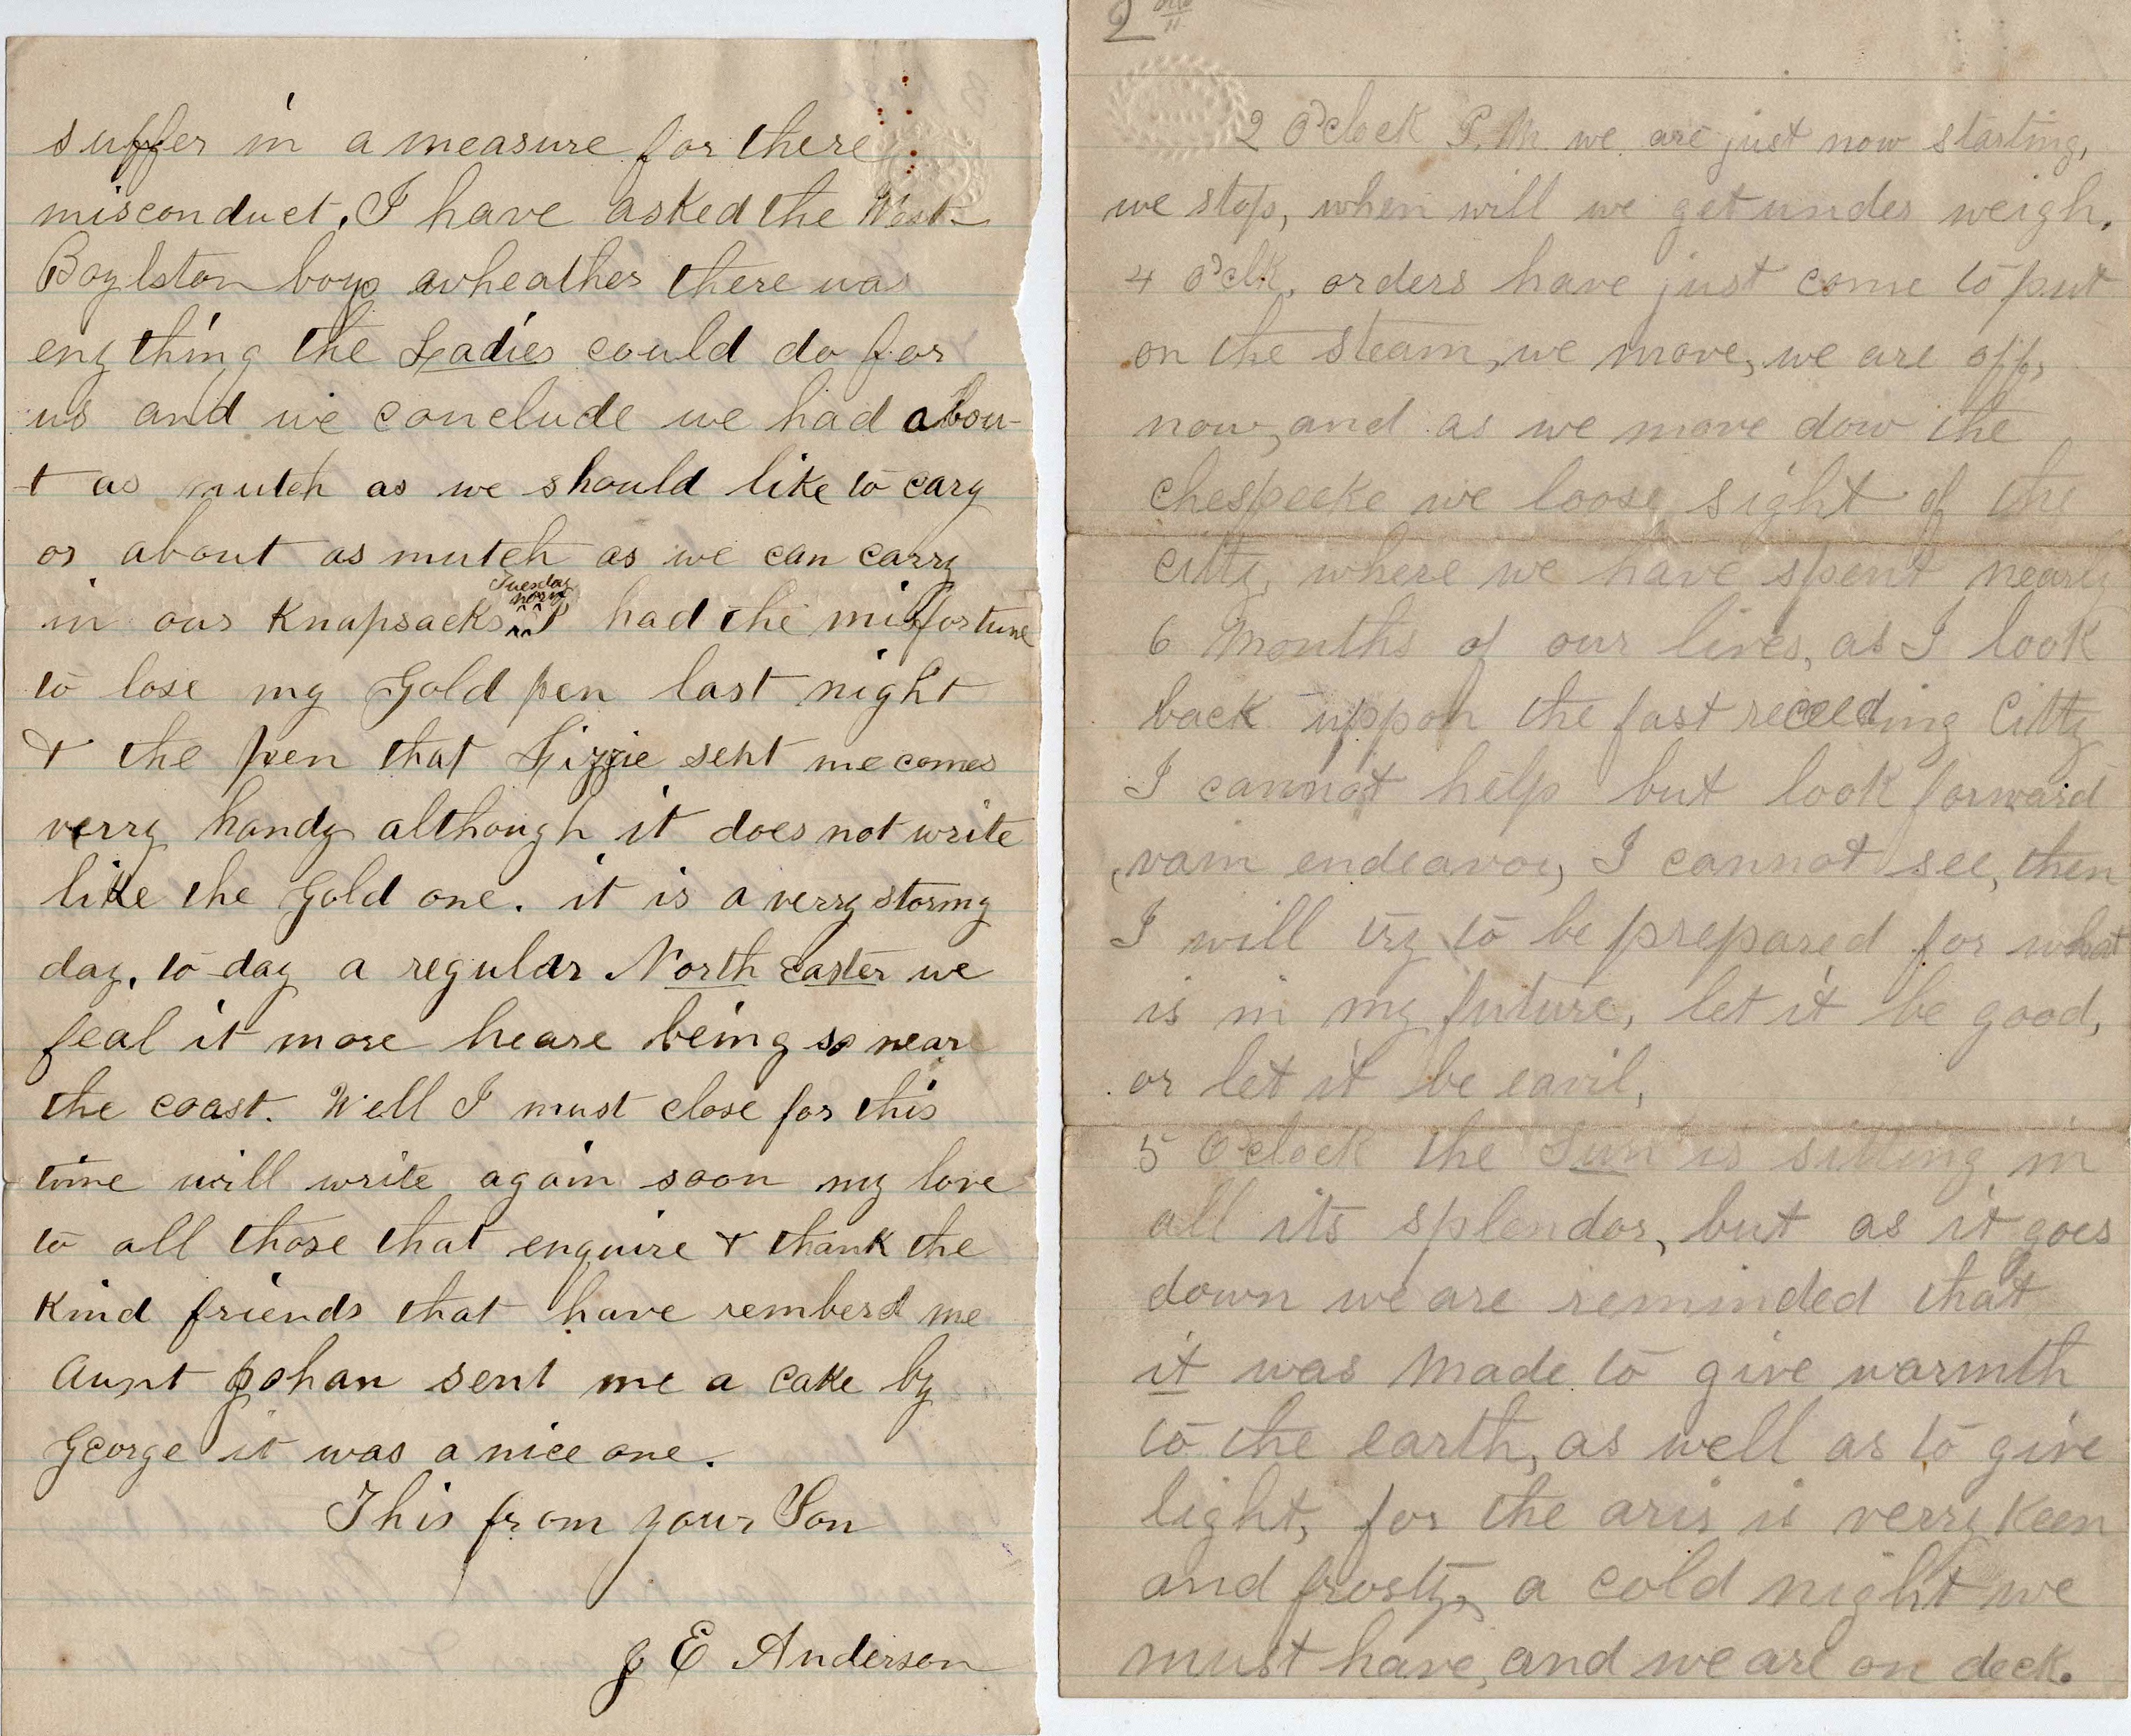 suffer in a measure for there
misconduct, I have asked the West
Boylston boys wheather there was
eny thing the Ladies could do for
us and we conclude we had abou-
t as mutch as we should like to cary
or about as mutch as we can carry
Tuesday
in our Knapsacks I had the misfortune
to lose my Gold pen last night
& the pen that Lizzie sent me comes
verry handy although it does not write
like the Gold one. it is a verry stormy
day, to day a regular North easter we
feal it more heare being so near
the coast. Well I must close for this
time will write again soon my love
to all those that enquire & thank the
Kind friends that have remberd me
Aunt Johan sent me a cake by
George it was a nice one.
This from your Son
J E Anderson
2
2 O'clock P.M. we are just now starting,
we stop, when will we get under weigh.
4 O'clk, orders have just come to put
on the steam, we move, we are off,
now, and as we move dow the
chespeeke we loose sight of the
citty, where we have spent nearly
6 Months of our lives, as I look
back uppon the fast receeding Citty
I cannot help but look forward
vain endeavor, I cannot see, then
I will try to be prepared for what
is in my future, let it be good,
or let it be eavil,
5 O'clock the Sun is sitting in
all its splendor, but as it goes
down we are reminded that
it was made to give warmth
to the earth, as well as to give
light, for the aris is verry Keen
and frosty, a cold night we
must have, and we are on deck.